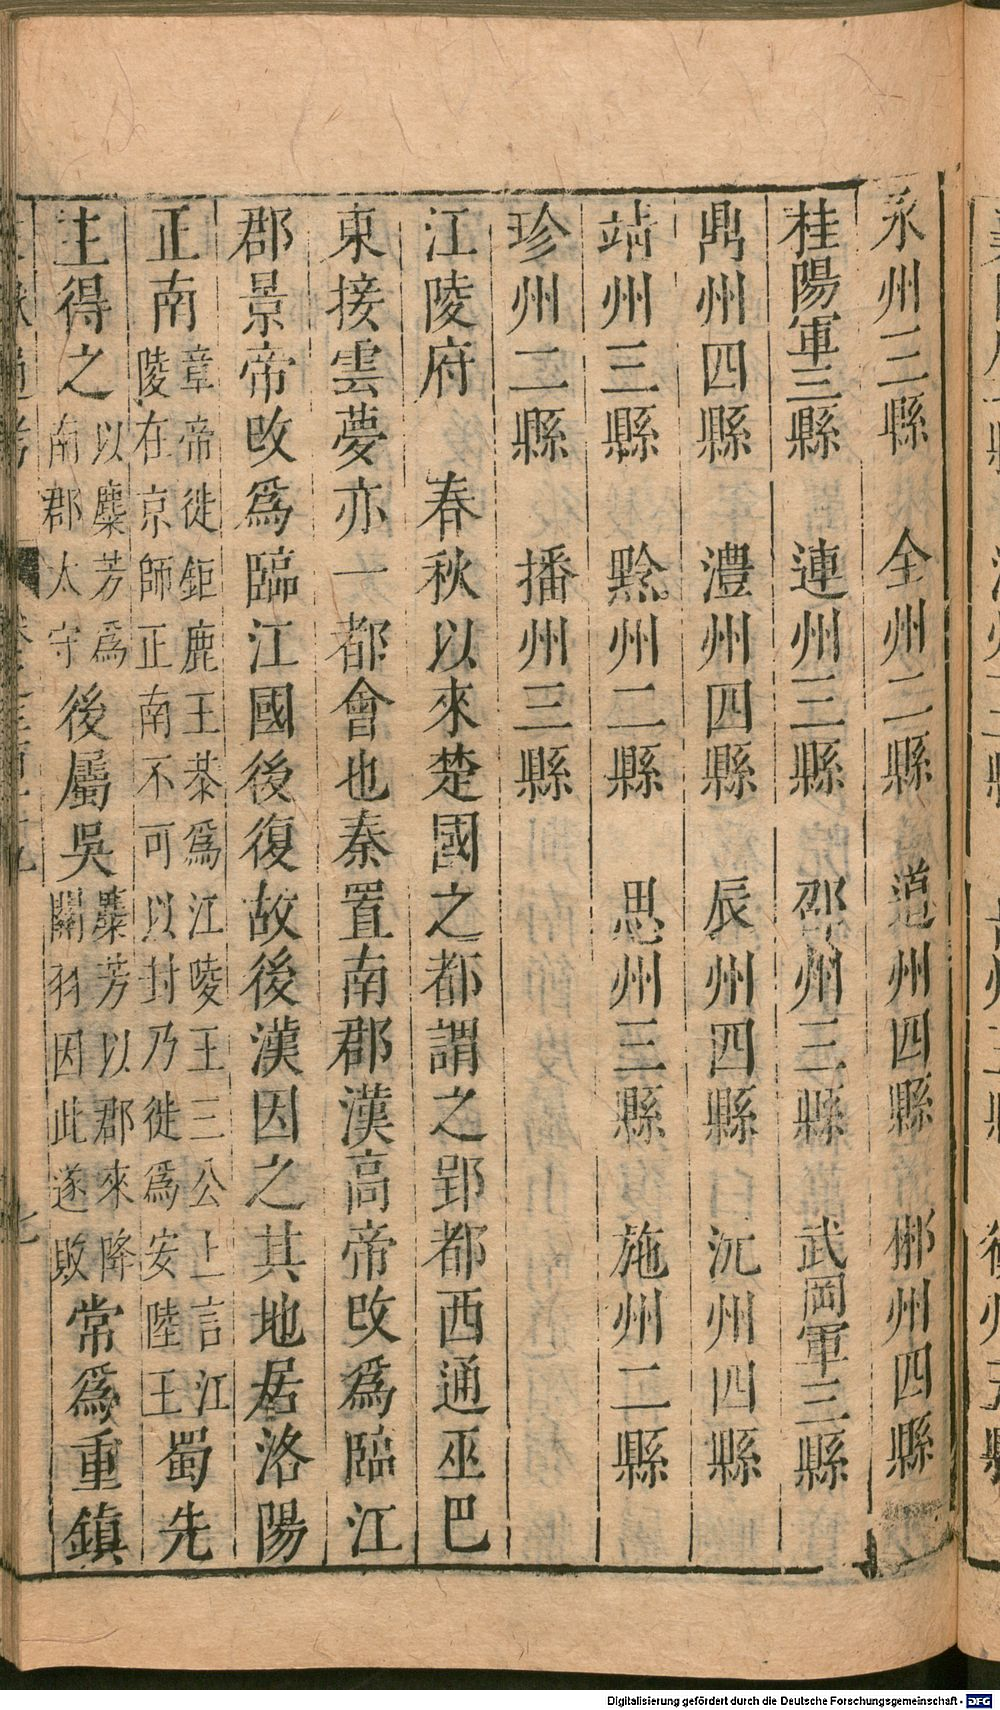 永州三縣 全州二縣 道州四縣 郴州四縣
桂陽軍三縣 連州三縣 邵州三縣 武岡軍三縣
鼎州四縣 澧州四縣 辰州四縣 沅州四縣
靖州三縣 黔州二縣 思州三縣 施州二縣
珍州二縣 播州三縣
江陵府 春秋以來楚國之都謂之郢都西通巫巴
東接雲夢亦一都會也秦置南郡漢高帝改爲臨江
郡景帝改爲臨江國後復故後漢因之其地居洛陽
正南章帝徙鉅鹿王恭爲江陵王三公上言江陵在京師正南不可以封乃徙爲安陸王蜀先
主得之以麋芳爲南郡太守後屬吳麋芳以郡來降關羽因此遂敗常爲重鎮
Digitalisierung gefördert durch die Deutsche Forschungsgemeinschaft - DFG